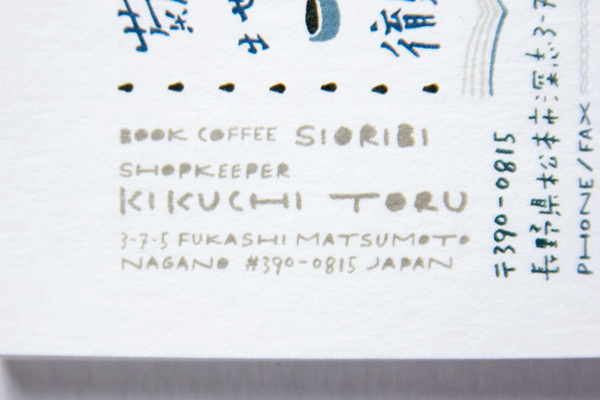 BOOK COFFEE SIORIBI
SHOPKEEPER
KIKUCHI TORU
3-7-5 FUKASHI MATSUMOTO
NAGANO #390-0815 JAPAN
〒390-0815
長野県松本市深志3-7
PHONE/FAX